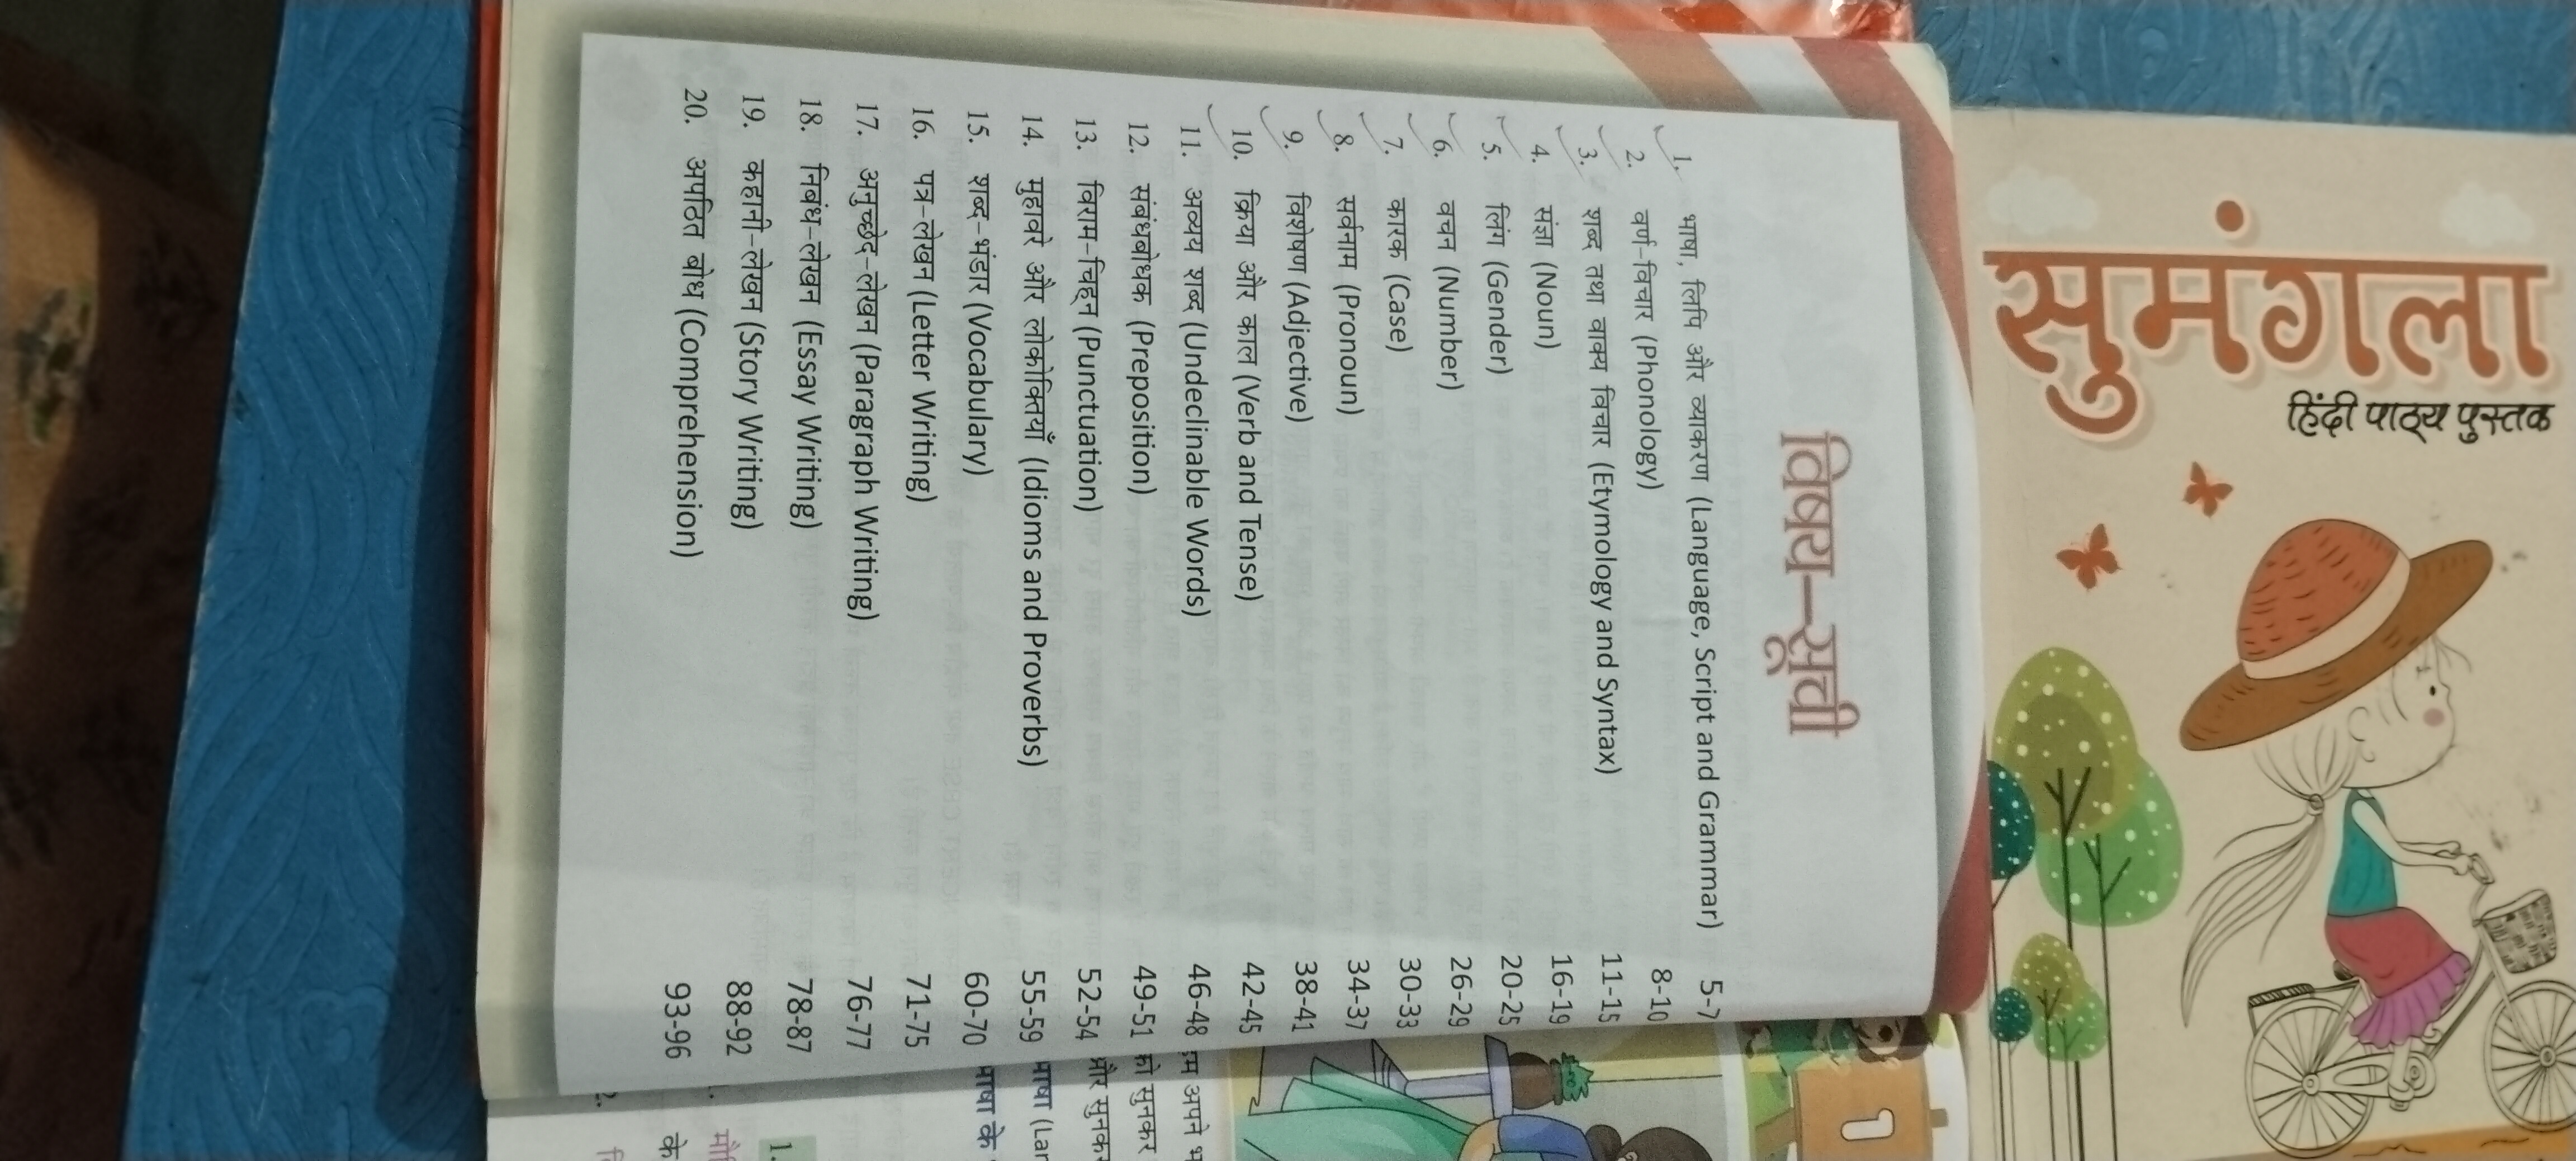 विषय-सूची
1. भाषा, लिपि और व्याकरण (Language, Script and Grammar) 5-7
2. वर्ण-विचार (Phonology) 8-10
3. शब्द तथा वाक्य विचार (Etymology and Syntax) 11-15
4. संज्ञा (Noun) 16-19
5. लिंग (Gender) 20-25
6. वचन (Number) 26-29
7. कारक (Case) 30-33
8. सर्वनाम (Pronoun) 34-37
9. विशेषण (Adjective) 38-41
10. क्रिया और काल (Verb and Tense) 42-45
11. अव्यय शब्द (Undeclinable Words) 46-48
12. संबंधबोधक (Preposition) 49-51
13. विराम-चिह्न (Punctuation) 52-54
14. मुहावरे और लोकोक्तियाँ (Idioms and Proverbs) 55-59
15. शब्द-भंडार (Vocabulary) 60-70
16. पत्र-लेखन (Letter Writing) 71-75
17. अनुच्छेद-लेखन (Paragraph Writing) 76-77
18. निबंध-लेखन (Essay Writing) 78-87
19. कहानी-लेखन (Story Writing) 88-92
20. अपठित बोध (Comprehension) 93-96
सुमंगला
हिंदी पाठ्य पुस्तक
1
अपने
को सुनकर
और सुनकर
भाषा
भाषा के
1.
के
2.